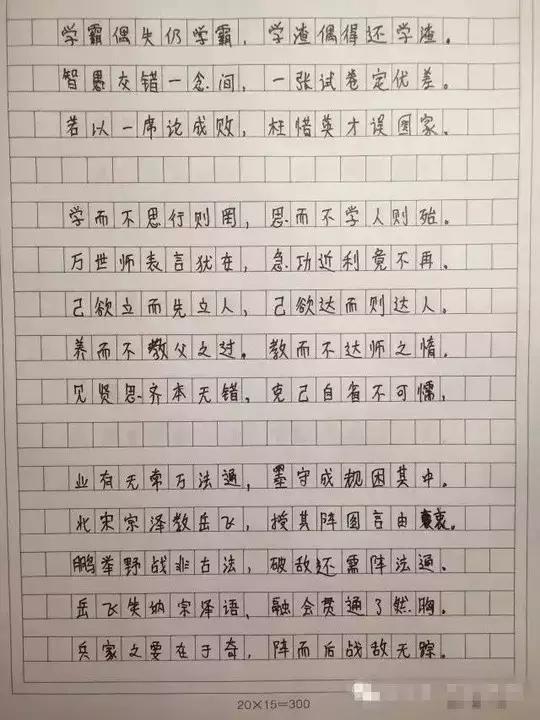 学霸偶失仍学霸，学渣偶得还学渣。
智愚交错一念间，一张试卷定优差。
若以一席论成败，枉惜英才误国家。
学而不思行则罔，思而不学人则殆。
万世师表言犹在，急功近利竟不再。
己欲立而先立人，己欲达而则达人。
养而不教父之过。教而不达师之惰。
见贤思齐本无错，克己自省不可懦，
业有无常万法通，墨守成规困其中。
北宋宗泽教岳飞，授其阵图言由衷。
鹏举野战非古法，破敌还需阵法通。
岳飞失纳宗泽语，融会贯通了然胸。
兵家之要在于奇，阵而后战敌无踪。
20×15=300